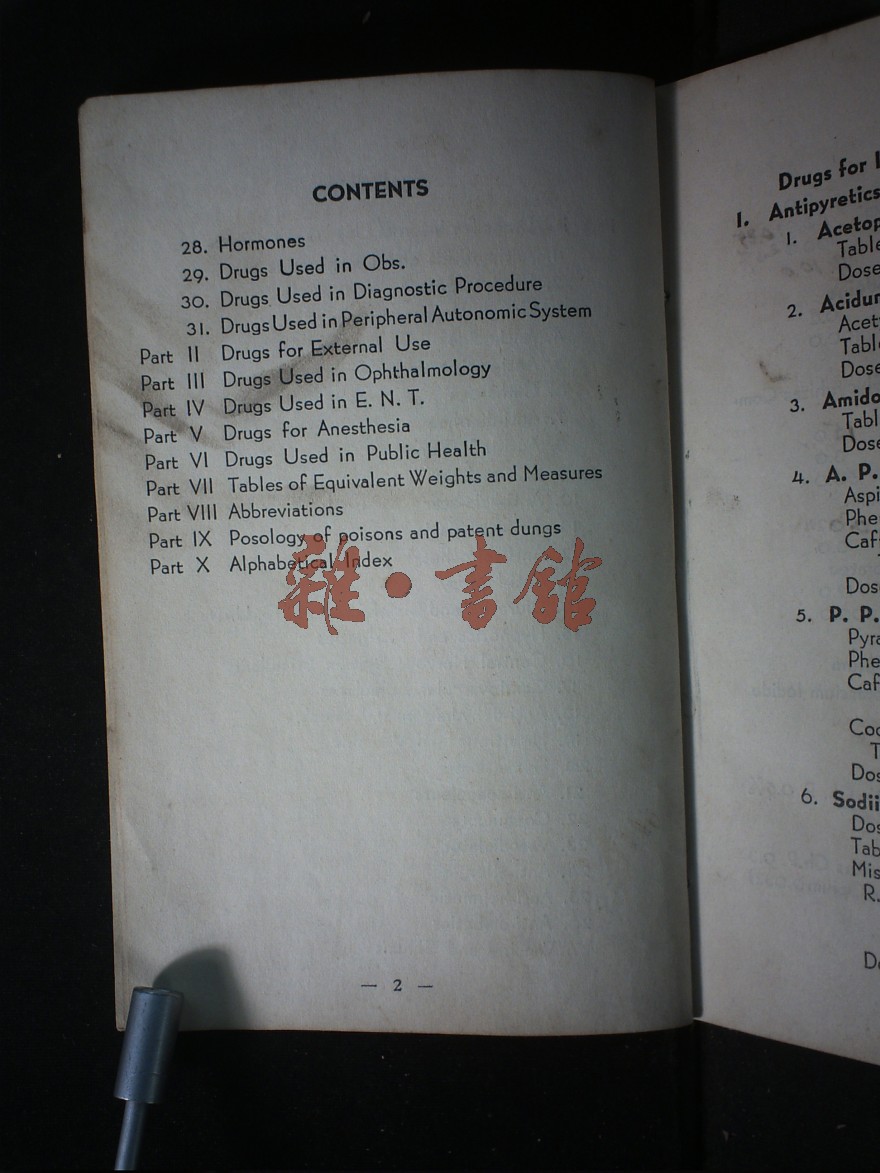 CONTENTS
28. Hormones
29. Drugs Used in Obs.
30. Drugs Used in Diagnostic Procedure
31. Drugs Used in Peripheral Autonomic System
Part II Drugs for External Use
Part III Drugs Used in Ophthalmology
Part IV Drugs Used in E. N. T.
Part V Drugs for Anesthesia
Part VI Drugs Used in Public Health
Part VII Tables of Equivalent Weights and Measures
Part VIII Abbreviations
Part IX Posology of poisons and patent dungs
Part X Alphabetical Index
雜·書館
— 2 —
Drugs for
I. Antipyretics
1.
Table
Dose
2.
Tabl
Dose
3.
Tabl
Dose
4. A. P.
Dos
5. P. P.
Dos
6. Sodii
Dos
Tab
R.